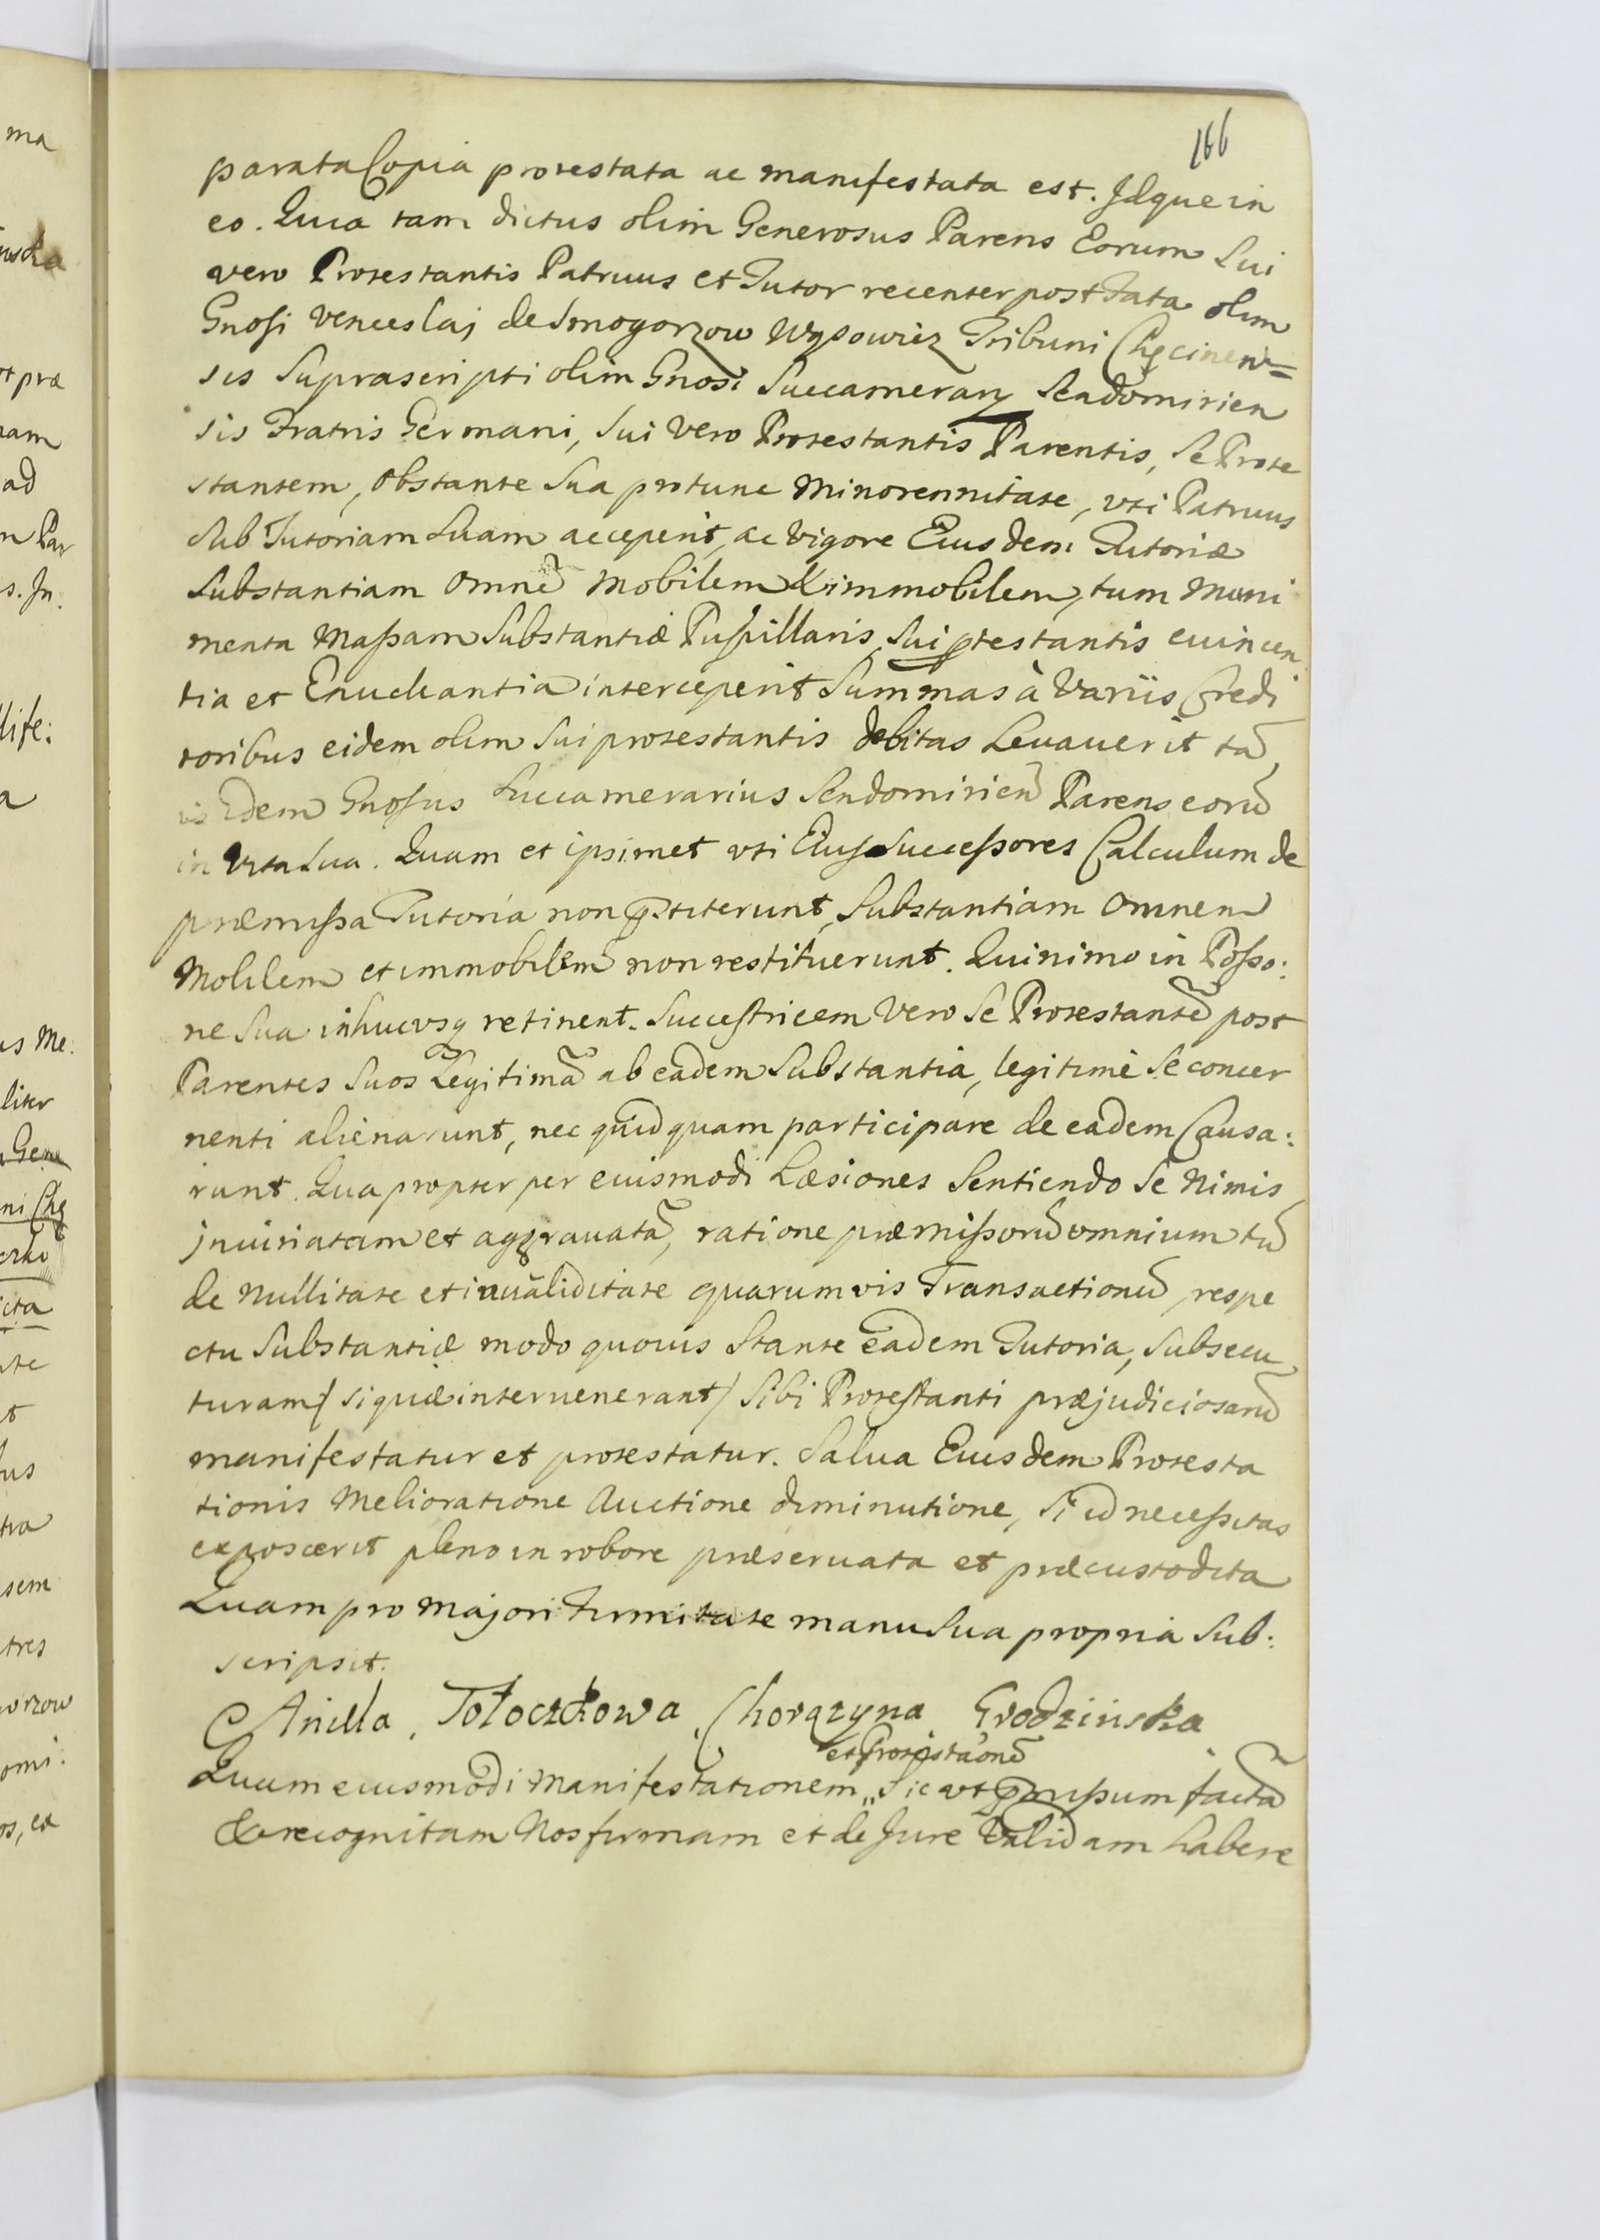 166
parata Copia protestata ac manifestata est. Idque in
eo. Quia tam dictus olim Generosus Parens Eorum Sui
vero Protestantis Patruus et Tutor recenter post Fata olim
Gnosi Venceslaj de Smogorzow Wąsowicz Tribuni Chęcinen=
sis Suprascripti olim Gnosi Succamerarij Sendomirien
sis Fratris Germani, Sui vero Protestantis Parentis, Se Prote
stantem, Obstante Sua protunc Minorennitate, vti Patruus
Sub Tutoriam Suam acceperit, ac vigore Eiusdem Tutoriæ
Substantiam Omnẽ Mobilem & immobilem, tum Muni
menta Massam Substantiæ Pupillaris Sui ptestantis euincen
tia et Enucleantia interceperit Summas à Variis Credi
toribus eidem olim Sui protestantis debitas Leuauerit tã
is Idem Gnosus Succamerarius Sendomirien̄ Parens eorũ
in Vita Sua. Quam et ipsimet vti Eius Successores Calculum de
præmissa Tutoria non p̄stiterunt, Substantiam Omnem
Mobilem et immobilem non restituerunt. Quinimo in Posso:
ne Sua inhucusq retinent. Succestricem Vero Se Protestantẽ post
Parentes Suos Legitimã ab eadem Substantia, legitimè Se concer
nenti alienarunt, nec quidquam participare de eadem Causa:
runt. Qua propter per eiusmodi Læsiones Sentiendo Se Nimis
iniuriatam et aggrauatã, ratione præmissorũ omnium tũ
de Nullitate et inualiditate quarumvis Transactionũ, respe
ctu Substantiæ modo quouis Stante eadem Tutoria, Subsecu
turam / siquæ interuenerant / Sibi Protestanti præjudiciosarũ
manifestatur et protestatur. Salua Eiusdem Protesta
tionis Melioratione Auctione diminutione, Si id necessitas
exposcerit pleno in robore præseruata et præcustodita
Quam pro Majori Firmitate manu Sua propria Sub:
scripsit.
Aniella Tołoczkowa Chorązyna Grodzinska
et Protestaonẽ
Quam eiusmodi Manifestationem „ Sic vt p̄missum factã
& recognitam Nos firmam et de Jure Validam habere